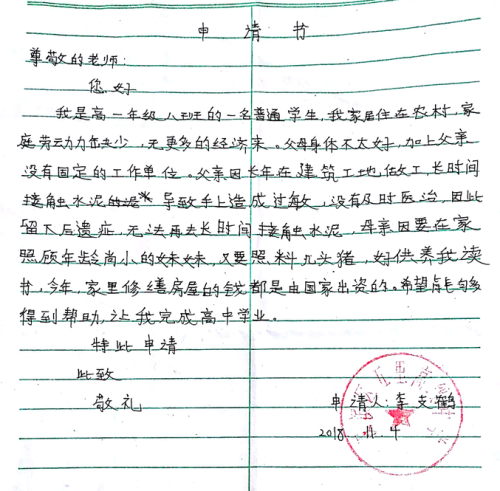 申请书
尊敬的老师:
您好
我是高一年级八班的一名普通学生,我家居住在农村,家
庭劳动力缺少,无更多的经济来。父母身体不太好,加上父亲
没有固定的工作单位。父亲因长年在建筑工地做工,长时间
接触水泥的 导致手上造成过敏,没有及时医治,因此
留下后遗症,无法再去长时间接触水泥,母亲因要在家
照顾年龄尚小的妹妹,又要照料几头猪,好供养我读
书,今年,家里修缮房屋的钱都是由国家出资的。希望能够
得到帮助,让我完成高中学业。
特此申请
此致
敬礼
申请人:李支鹤
2018.11.4